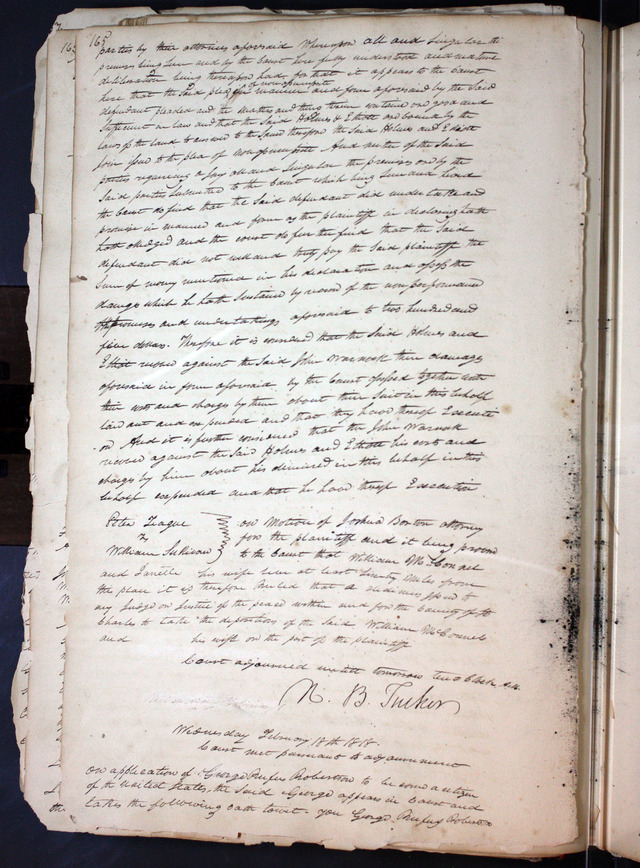 165
parties by their attornies aforesaid Whereupon all and Singular the
premises being Seen and by the Court here fully understood and mature
deliberation being thereupon had, for that it appears to the Court
here that the Said plea of non assumpsit in manner and form aforesaid by the Said
defendant pleaded and the matters and things therein contained are good and
Sufficient in law and that the Said Holmes & Elliott are bound by the
laws of the land to answer to the Same therefore the Said Holmes and Elliott
join issue to the plea of non assumpsit And neither of the Said
parties requiring a jury all and Singular the premises are by the
Said parties Submitted to the Court which being Seen and heard
the Court do find that the Said defendant did undertake and
promise in manner and form as the plaintiff in declaring hath
hath alledged and the court do further find that the Said
defendant did not well and truly pay the Said plaintiff the
Sum of money mentioned in his declaration and assess the
damage which he hath Sustained by reason of the non performance
promises and undertakings aforesaid to two hundred and
dollars. Therefore it is considered that the Said Holmes and
Elliott recover against the Said John Warnock their damages
aforesaid in form aforesaid by the Court assessed together with
their costs and charges by them about their Suit in this behalf
laid out and expended and that they have thereof Executi
on And it is further considered that the John Warnock
recover against the Said Holmes and Elliott his costs and
charges by him about his in this behalf in this
behalf expended and that he have thereof Execution
Peter Teague
William
on Motion of Joshua Barton attorney
for the plaintiff and it being proven
to the Court that William McConnel
and his wife live at least Miles from
the place it is therefore Ruled that a dedimus issue to
any Judge or Justice of the peace within and for the County of St
Charles to take the depositions of the Said William McConnel
and his wife on the part of the plaintiff
Court adjourned untill tomorrow ten o Clock A.M.
N. B. Tucker
Wednesday February 18th 1818
Court met pursuant to adjournment
on application of George Rufus Robertson to become a citizen
of the United States, the Said George appears in Court and
takes the following oath towit - You George Rufus Roberts